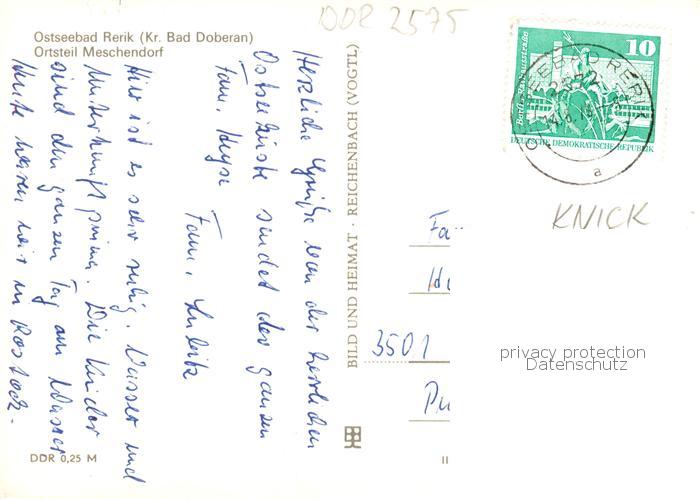 DDR 2575
Ostseebad Rerik (Kr. Bad Doberan)
Ortsteil Meschendorf
Herzliche Grüße von der herrlichen
Ostseeküste sendet der ganzen
Fam.
Fam.
Hier ist es sehr ruhig. Wasser und
Unterkunft prima. Die Kinder
sind den ganzen Tag am Wasser
Heute waren wir in Rostock.
DDR 0,25 M
BILD UND HEIMAT · REICHENBACH (VOGTL)
II
10
DEUTSCHE DEMOKRATISCHE REPUBLIK
OSTSEEBAD RERIK
2572
a
KNICK
Fa
3501
privacy protection
Datenschutz